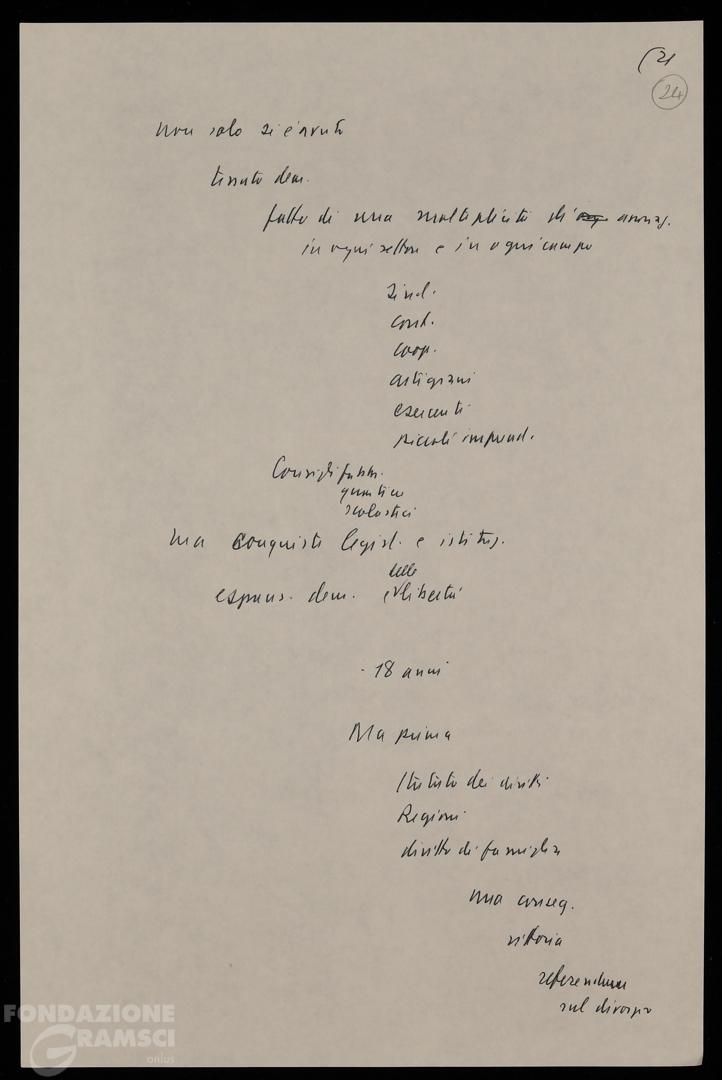 (21
24
non solo si è avuto
tessuto dem.
fatto di una molteplicità di assoz.
in ogni settore e in ogni campo
Sind.
cont.
coop.
artigiani
esercenti
piccoli imprend.
Consigli fabbr.
quartiere
scolastici
ma conquiste legisl. e istituz.
delle
espans. dem. e libertà
- 18 anni
Ma prima
Statuto dei diritti
Regioni
diritto di famiglia
una conseg.
vittoria
referendum
sul divorzio
FONDAZIONE
GRAMSCI
onlus